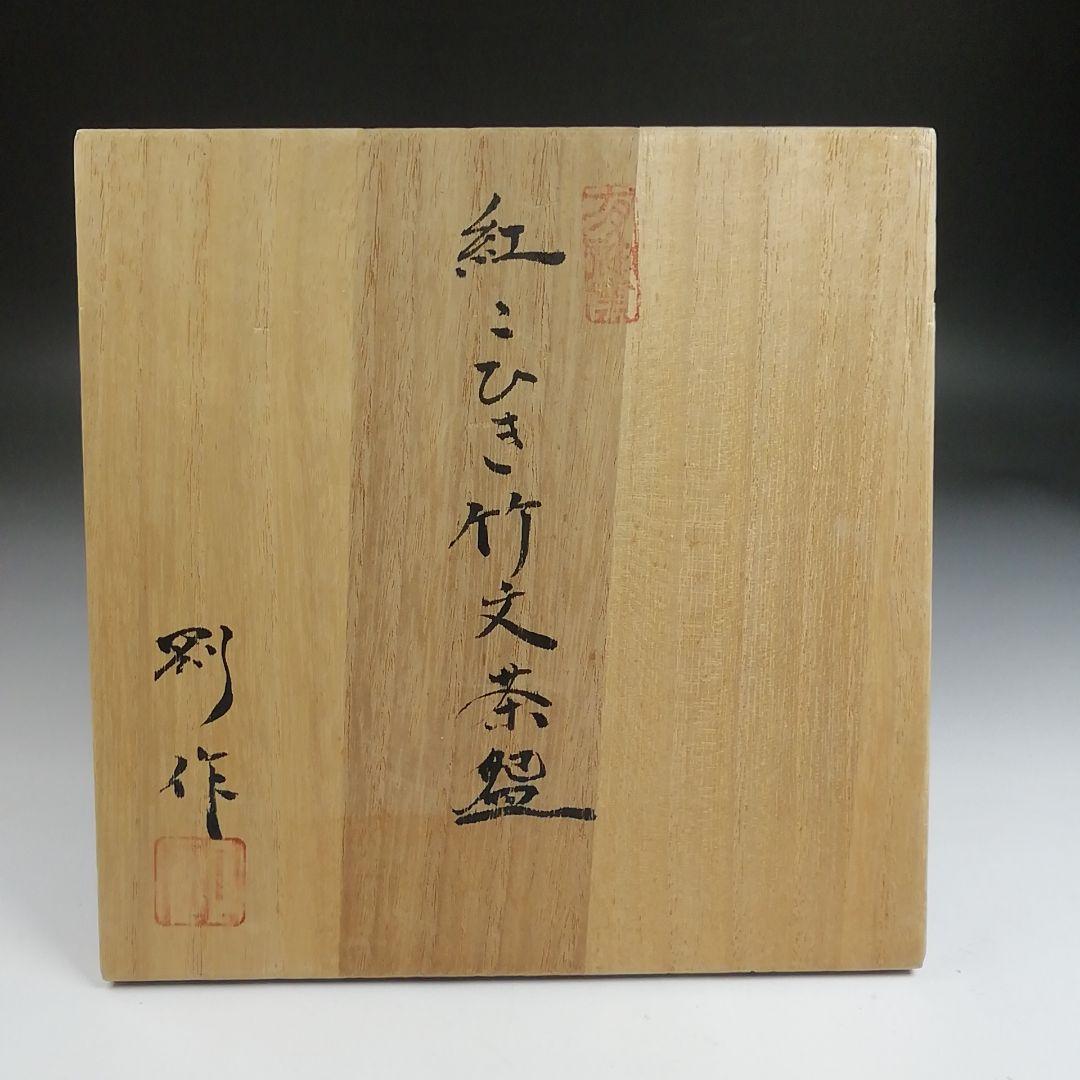 紅こひき竹文茶盌
剛作